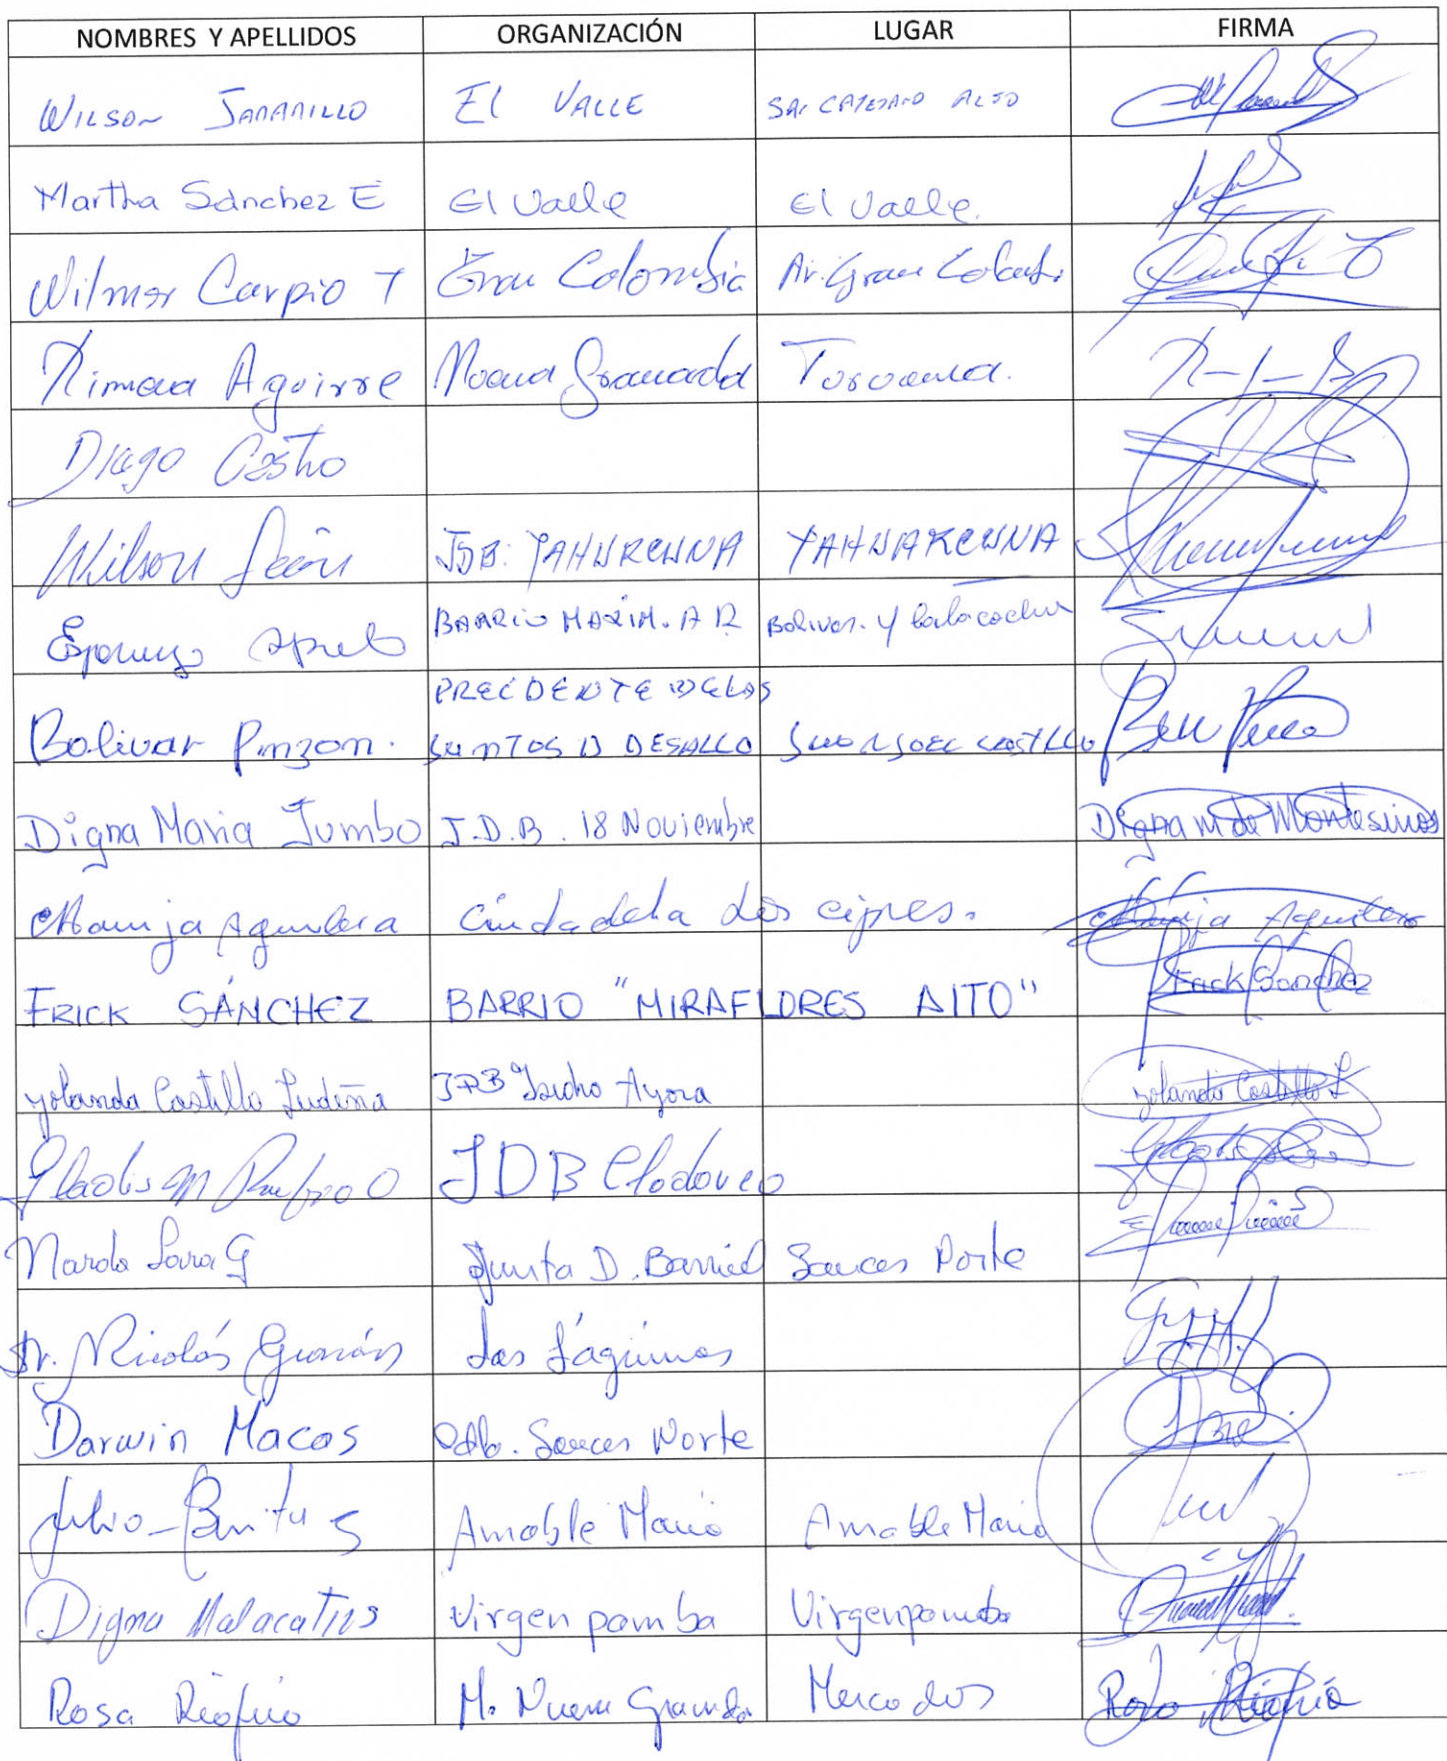 NOMBRES Y APELLIDOS ORGANIZACIÓN LUGAR FIRMA
WILSON JARAMILLO EL VALLE SAN CAYETANO ALTO
Martha Sánchez E El Valle El Valle.
Wilmer Carpio T Gran Colombia Av. Gran Colombi
Ximena Aguirre Nueva Granada Turunuma.
Diego Castro
Wilson León JDB: YAHUARCUNA
BARRIO MAXIM. A R. Bolivar. y
Bolivar Pinzon. PRECIDENTE DELAS
Digna Maria Jumbo J.D.B. 18 Noviembre Digna M de Montesinos
Maruja Aguilera Ciudadela los cipres. Maruja Aguilera
ERICK SÁNCHEZ BARRIO "MIRAFLORES ALTO" Erick Sanchez
Yolanda Castillo Ludeña JDB Isidro Ayora Yolanda Castillo L
Gladis M JDB Clodoveo
Narda Lara G Junta D. Barrial Sauces Norte
Dr. Nicolás Guamán Las Lágrimas
Darwin Macas Cdla. Sauces Norte
Julio Amable Maria Amable Maria
Digna Malacatus Virgenpamba Virgenpamba
Rosa Riofrio M. Nueva Granada Mercados Rosa Riofrio